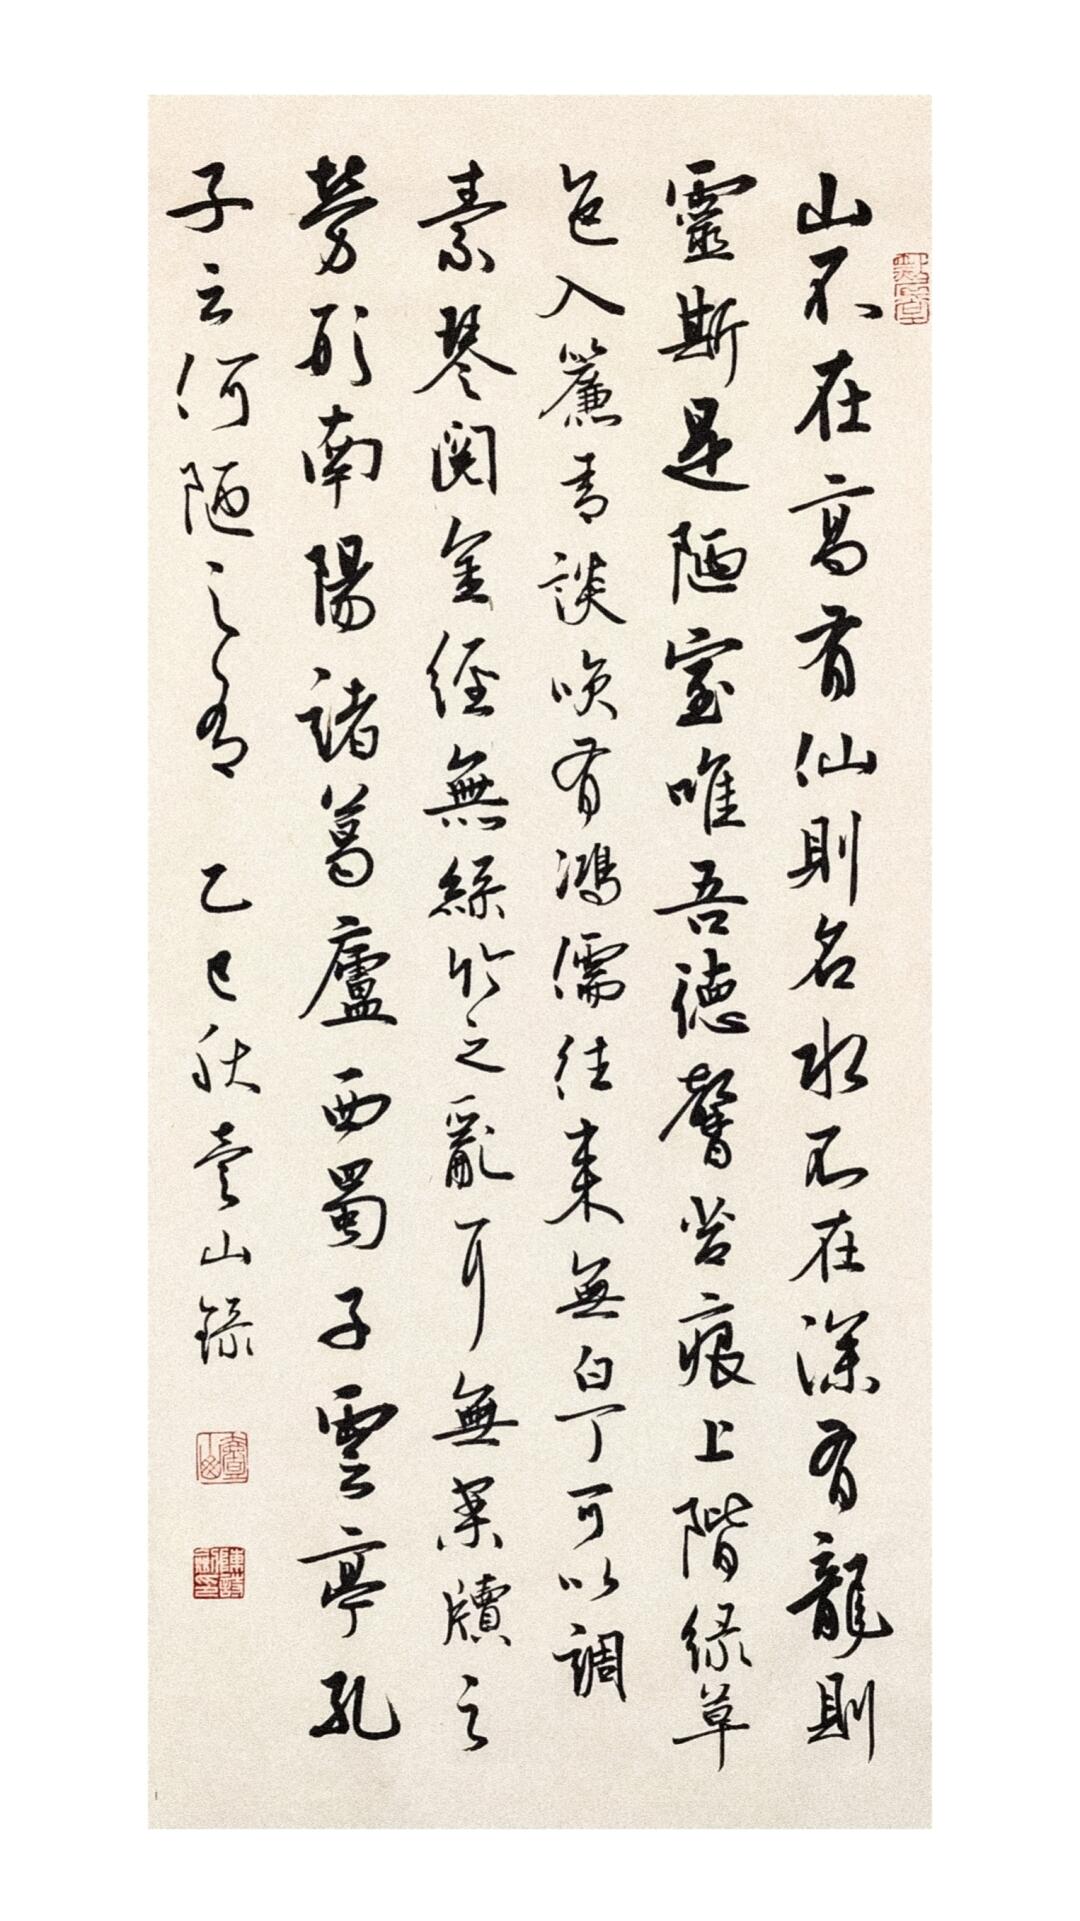 山不在高有仙則名水不在深有龍則
靈斯是陋室唯吾德馨苔痕上階綠草
色入簾青談咲有鴻儒往來無白丁可以調
素琴閱金經無絲竹之亂耳無案牘之
勞形南陽諸葛廬西蜀子雲亭孔
子云何陋之有 乙巳秋 山錄